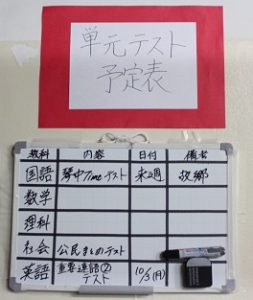 単元テスト
予定表
教科 内容 日付 備考
国語 集中Timeテスト 来週 故郷
数学
理科
社会 公民まとめテスト
英語 重要連語②テスト 10/3(月)